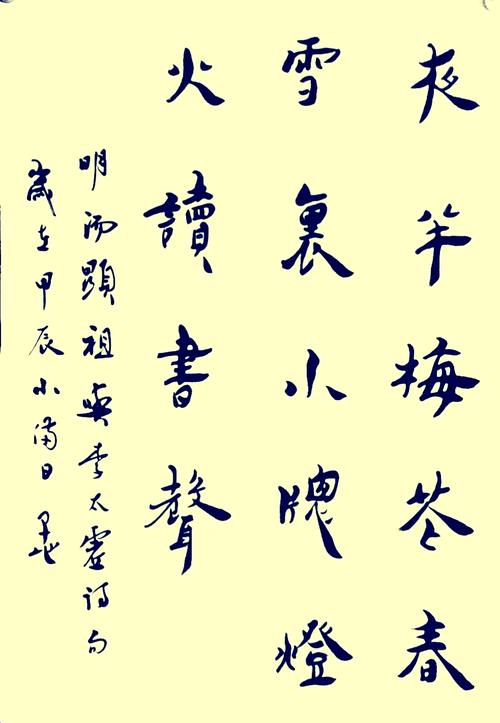 夜半梅花春
雪裏小牕燈
火讀書聲
明湯顯祖與李太虛詩句
歲在甲辰小滿日